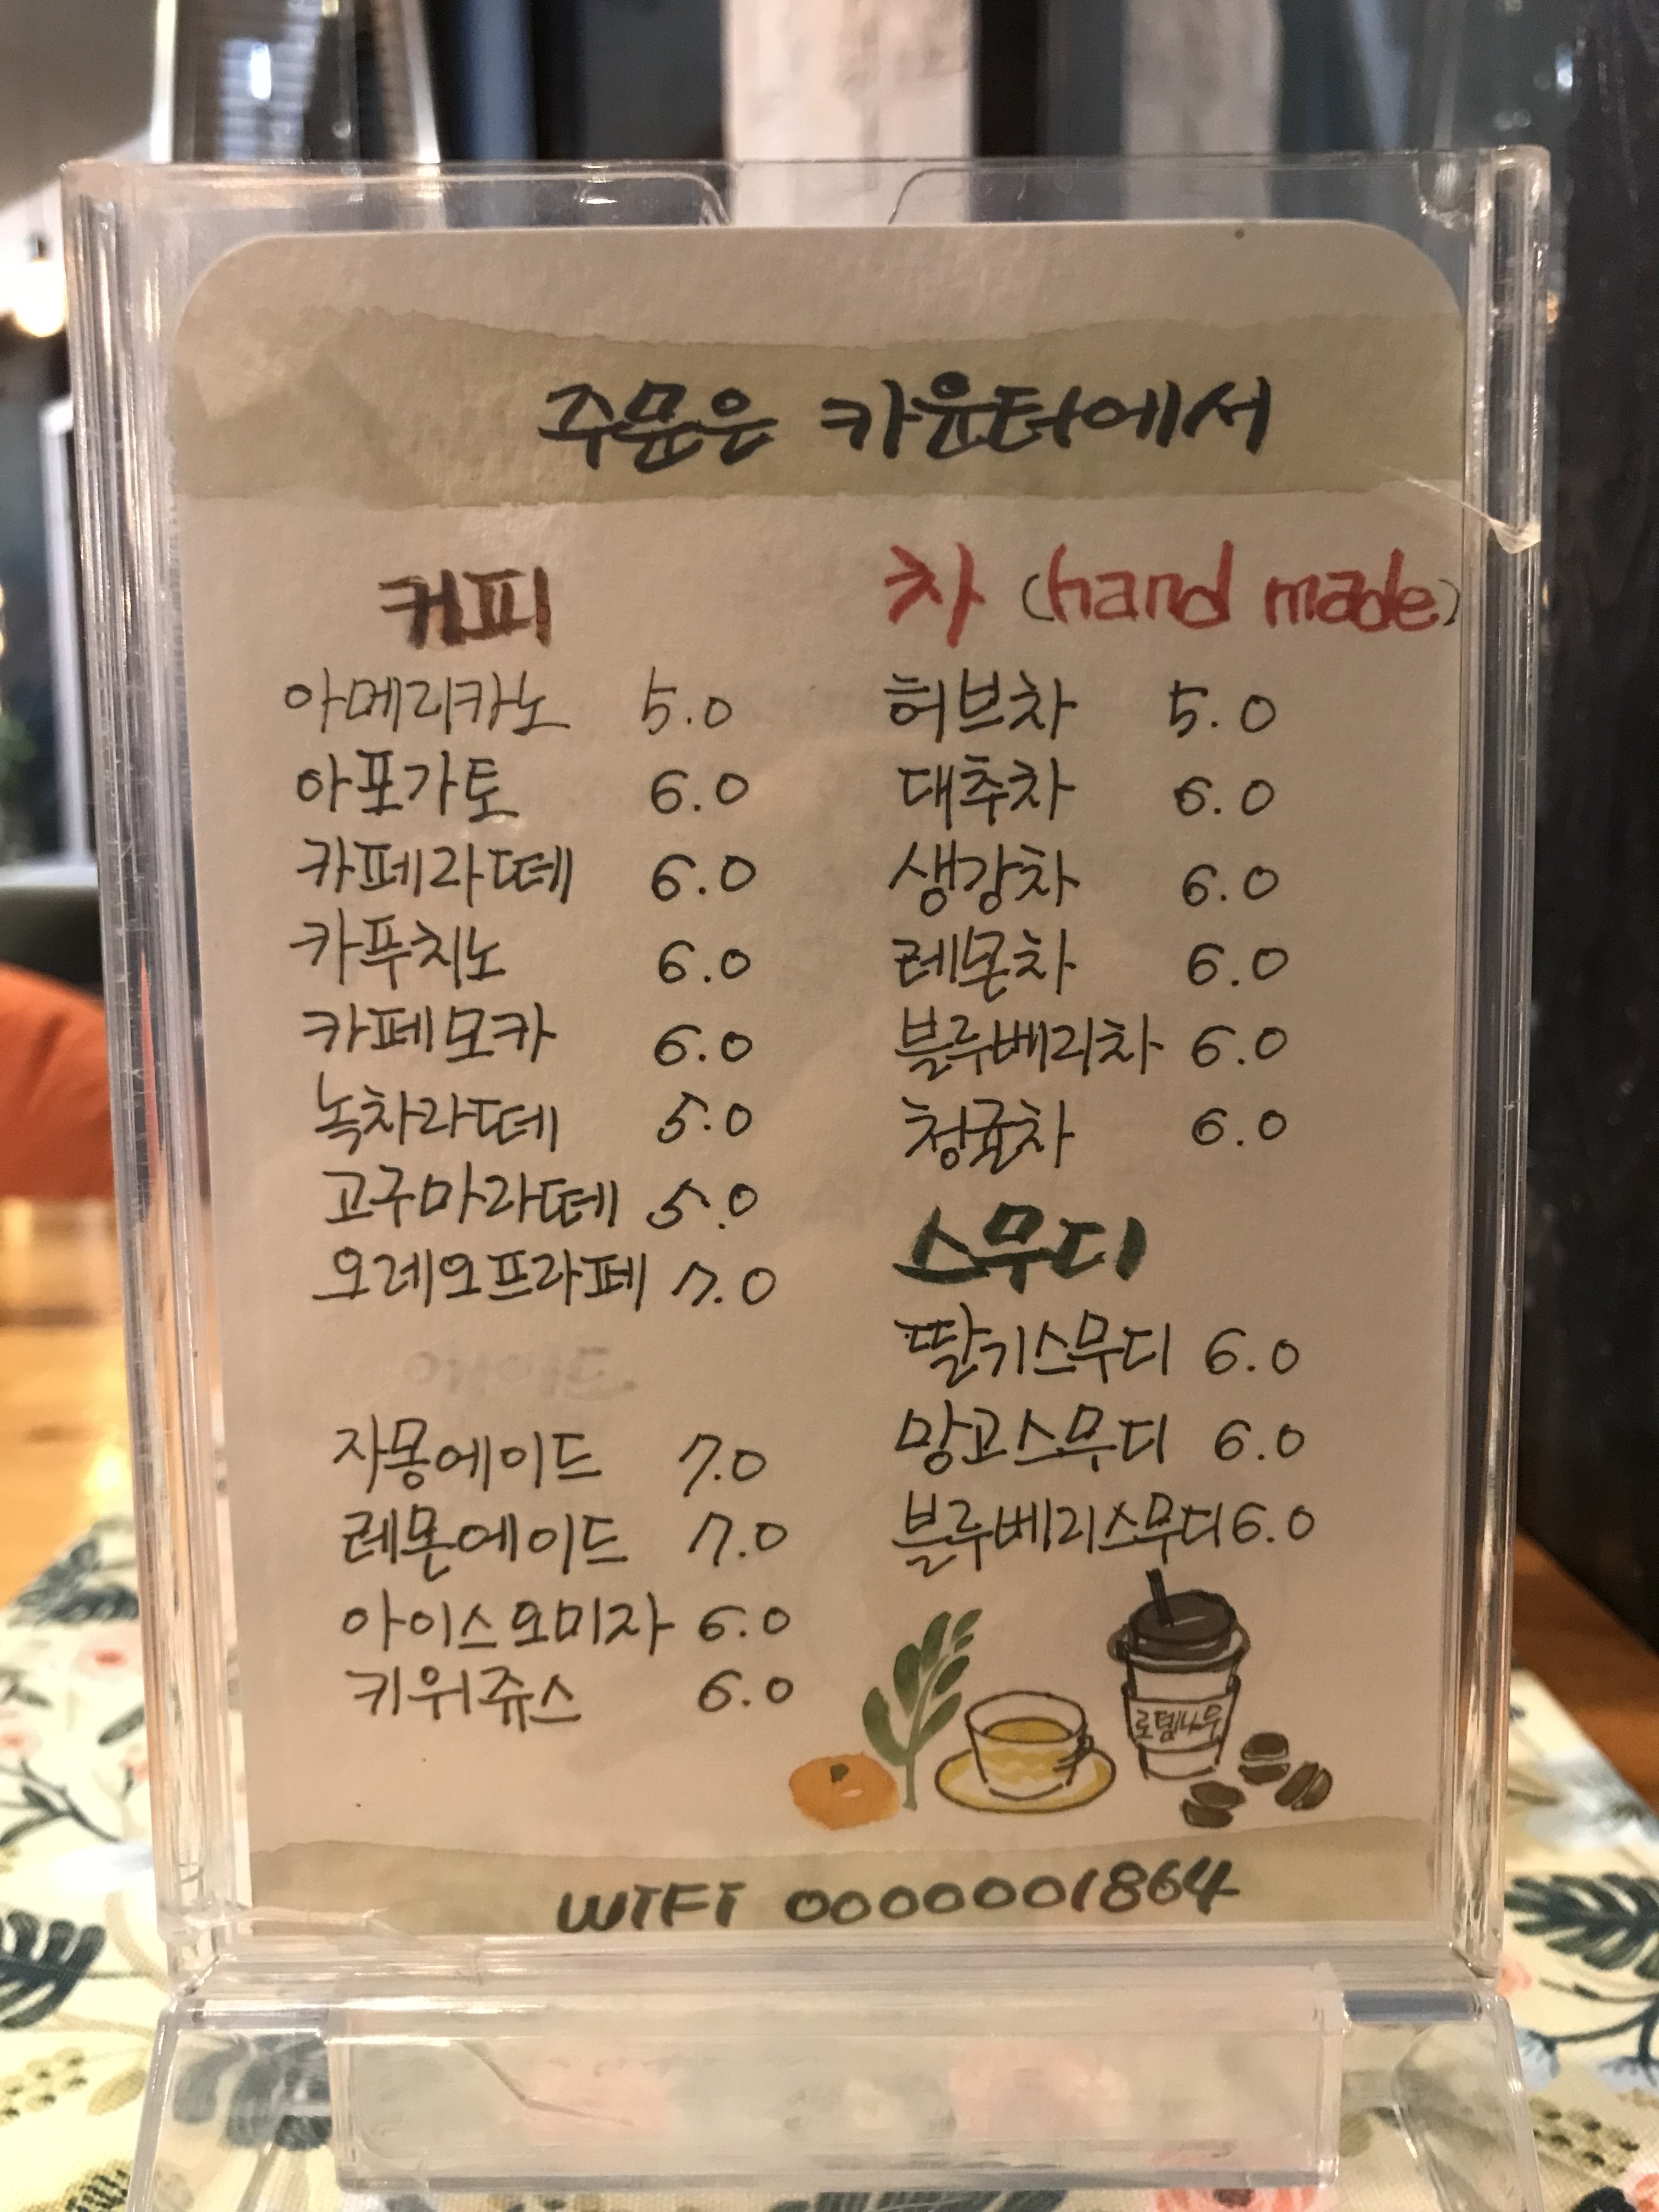 주문은 카운터에서
커피
아메리카노 5.0
아포가토 6.0
카페라떼 6.0
카푸치노 6.0
카페모카 6.0
녹차라떼 5.0
고구마라떼 5.0
오레오프라페 7.0
자몽에이드 7.0
레몬에이드 7.0
아이스오미자 6.0
키위쥬스 6.0
차 (hand made)
허브차 5.0
대추차 6.0
생강차 6.0
레몬차 6.0
블루베리차 6.0
청귤차 6.0
스무디
딸기스무디 6.0
망고스무디 6.0
블루베리스무디 6.0
로뎀나무
WIFI 0000001864